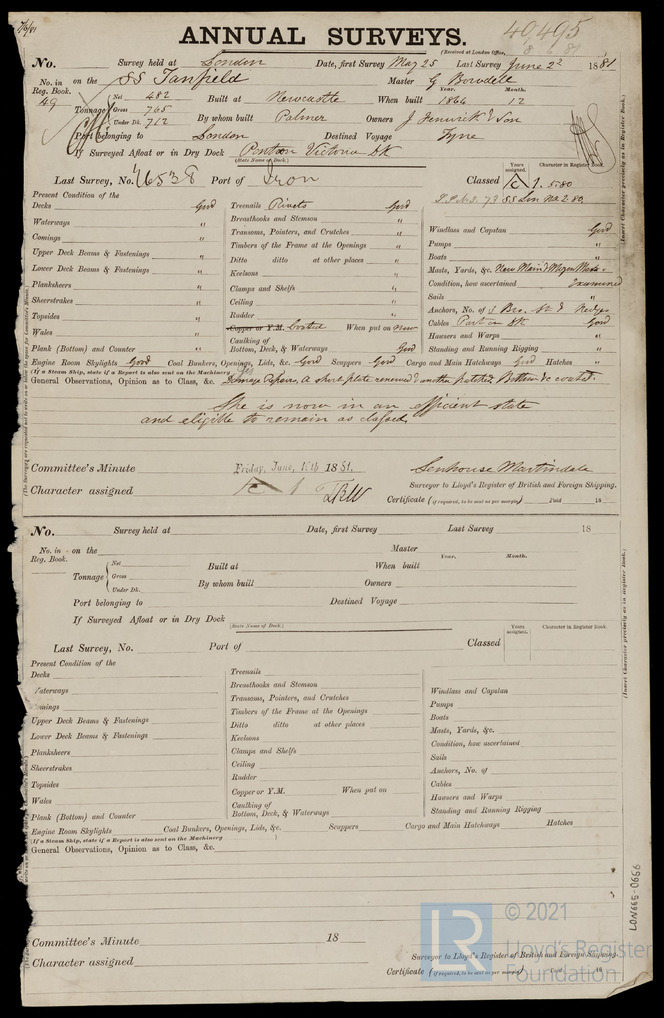 7/6/81
ANNUAL SURVEYS.
40,495
(Received at London Office, 8 6 81
No. Survey held at London Date, first Survey May 25 Last Survey June 2d 1881
No. in Reg. Book. 49 on the SS Tanfield Master G Bowdell
Tonnage Net 482 Gross 765 Under Dk. 712 Built at Newcastle When built Year. 1864 Month. 12
By whom built Palmer Owners J Fenwick & Son
Port belonging to London Destined Voyage Tyne
If Surveyed Afloat or in Dry Dock Victoria Dk
(State Name of Dock.)
Last Survey, No. 46538 Port of Iron Classed Years assigned. Character in Register Book. 1. 5.80
SS Lon No 2 80.
Present Condition of the
Decks Good Treenails Rivets Good
Waterways " Breasthooks and Stemson " Windlass and Capstan Good
Comings " Transoms, Pointers, and Crutches " Pumps "
Upper Deck Beams & Fastenings " Timbers of the Frame at the Openings " Boats "
Lower Deck Beams & Fastenings " Ditto ditto at other places " Masts, Yards, &c. New Main & Mizen Masts.
Planksheers " Keelsons " Condition, how ascertained Examined
Sheerstrakes " Clamps and Shelfs " Sails "
Topsides " Ceiling " Anchors, No. of
Wales " Rudder " Cables Good
Copper or Y.M. Coated When put on now Hawsers and Warps "
Plank (Bottom) and Counter " Caulking of Bottom, Deck, & Waterways Good Standing and Running Rigging "
Engine Room Skylights Good Coal Bunkers, Openings, Lids, &c. Good Scuppers Good Cargo and Main Hatchways Good Hatches "
(If a Steam Ship, state if a Report is also sent on the Machinery Yes
General Observations, Opinion as to Class, &c. Damage repairs. A short plate renewed & another patched. Bottom &c coated.
She is now in an efficient state
and eligible to remain as classed
Committee's Minute Friday, June, 10th 1881.
Senhouse Martindale
Surveyor to Lloyd's Register of British and Foreign Shipping.
Character assigned 1
Certificate (if required, to be sent as per margin) Paid 18
(Insert Character precisely as in Register Book.)
No. Survey held at Date, first Survey Last Survey 18
No. in Reg. Book. on the Master
Tonnage Net Gross Under Dk. Built at When built Year. Month.
By whom built Owners
Port belonging to Destined Voyage
If Surveyed Afloat or in Dry Dock
(State Name of Dock.)
Last Survey, No. Port of Classed Years assigned. Character in Register Book.
Present Condition of the
Decks Treenails
Waterways Breasthooks and Stemson Windlass and Capstan
Comings Transoms, Pointers, and Crutches Pumps
Upper Deck Beams & Fastenings Timbers of the Frame at the Openings Boats
Lower Deck Beams & Fastenings Ditto ditto at other places Masts, Yards, &c.
Planksheers Keelsons Condition, how ascertained
Sheerstrakes Clamps and Shelfs Sails
Topsides Ceiling Anchors, No. of
Wales Rudder Cables
Copper or Y.M. When put on Hawsers and Warps
Plank (Bottom) and Counter Caulking of Bottom, Deck, & Waterways Standing and Running Rigging
Engine Room Skylights Coal Bunkers, Openings, Lids, &c. Scuppers Cargo and Main Hatchways Hatches
(If a Steam Ship, state if a Report is also sent on the Machinery )
General Observations, Opinion as to Class, &c.
(Insert Character precisely as in Register Book.)
LON665-0666
Committee's Minute 18
Surveyor to Lloyd's Register of British and Foreign Shipping.
Character assigned
Certificate (if required, to be sent as per margin) 18
LR
© 2021
Lloyd's Register
Foundation